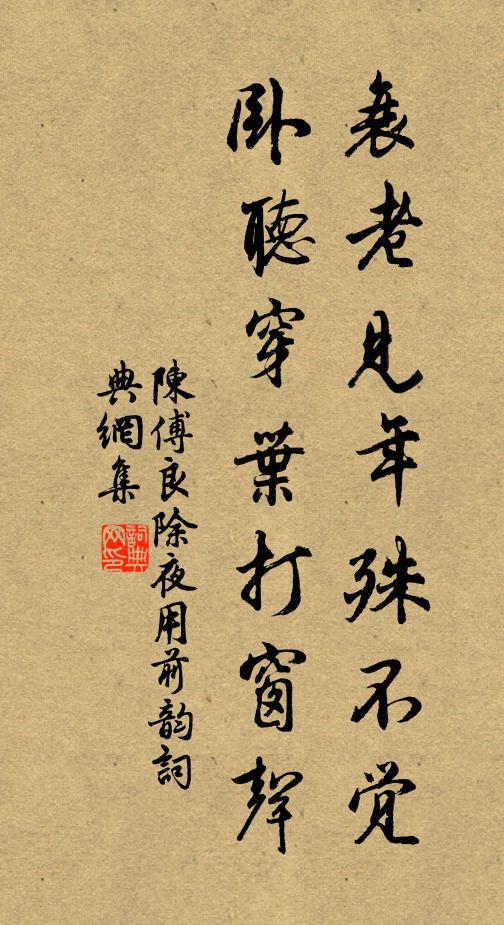 衰老見年殊不覺
臥聽穿葉打窗聲
陳傅良除夜用前韵詞
典網集
詞典網印